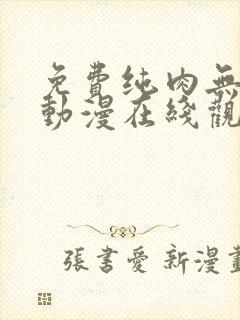 免費纯肉無
動漫在綫觀
張書愛 新漫畫